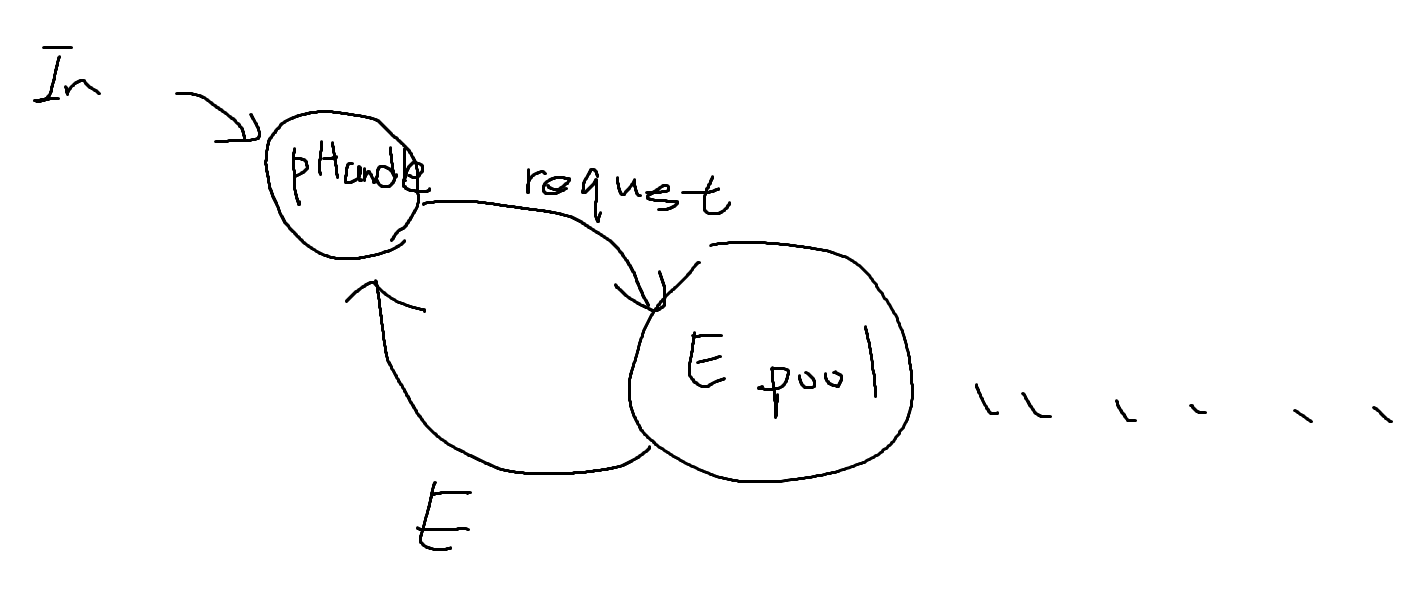 In
pHandle
request
E pool
E